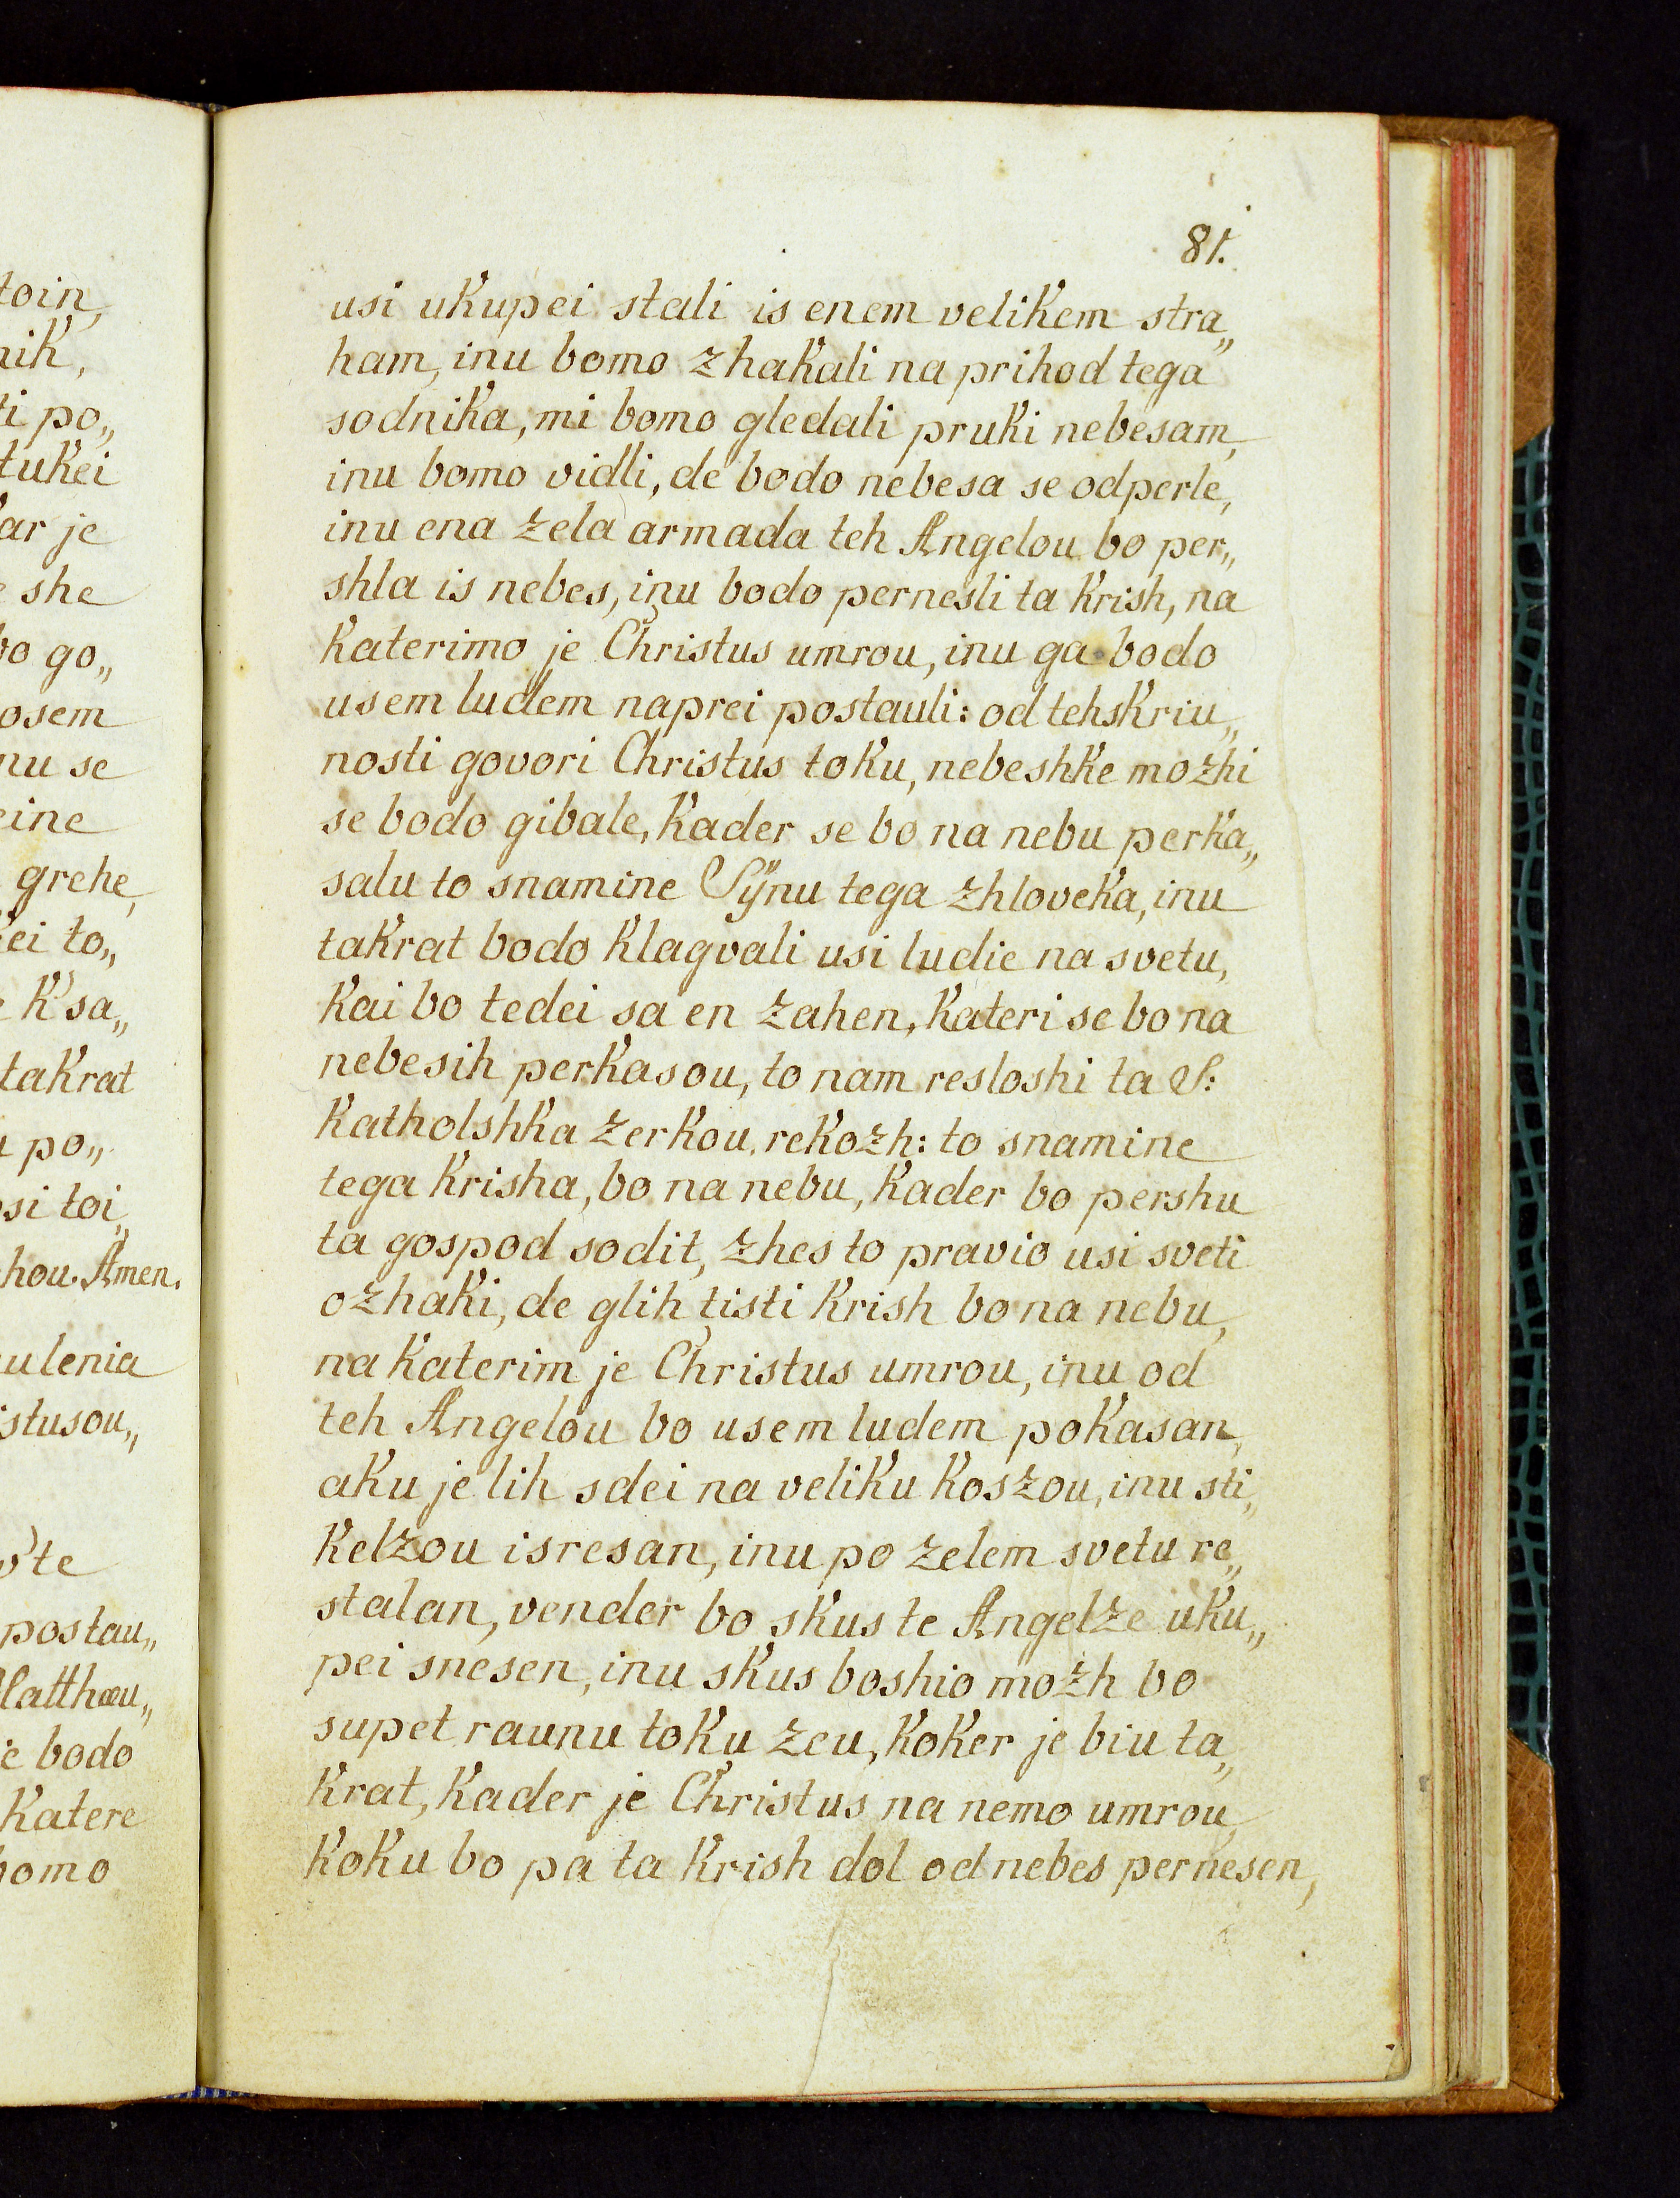 toin,
nik,
ti po„
tukei
kar je
e she
bo go„
osem
nu se
eine
grehe,
kei to„
e k'sa„
takrat
u po„
osi toi„
hou. Amen.
ulenia
istusou„
v'te
postau„
Matthæu„
je bodo
katere
bomo
81.
usi ukupei stali is enem velikem stra„
ham, inu bomo zhakali na prihod tega
sodnika, mi bomo gledali pruki nebesam,
inu bomo vidli, de bodo nebesa se odperle,
inu ena zela armada teh Angelou bo per„
shla is nebes, inu bodo pernesli ta krish, na
katerimo je Christus umrou, inu ga bodo
usem ludem naprei postauli: od teh skriu„
nosti govori Christus toku, nebeshke mozhi
se bodo gibale, kader se bo na nebu perka„
salu to snamine Sÿnu tega zhloveka, inu
takrat bodo klagvali usi ludie na svetu,
kai bo tedei sa en zahen, kateri se bo na
nebesih perkasou, to nam resloshi ta S:
katholshka zerkou, rekozh: to snamine
tega krisha, bo na nebu, kader bo pershu
ta gospod sodit, zhes to pravio usi sveti
ozhaki, de glih tisti krish bo na nebu,
na katerim je Christus umrou, inu od
teh Angelou bo usem ludem pokasan,
aku je lih sdei na veliku koszou, inu sti„
kelzou isresan, inu po zelem svetu re„
stalan, vender bo skus te Angelze uku„
pei snesen, inu skus boshio mozh bo
supet raunu toku zeu, koker je biu ta„
krat, kader je Christus na nemo umrou,
koku bo pa ta krish dol od nebes pernesen,